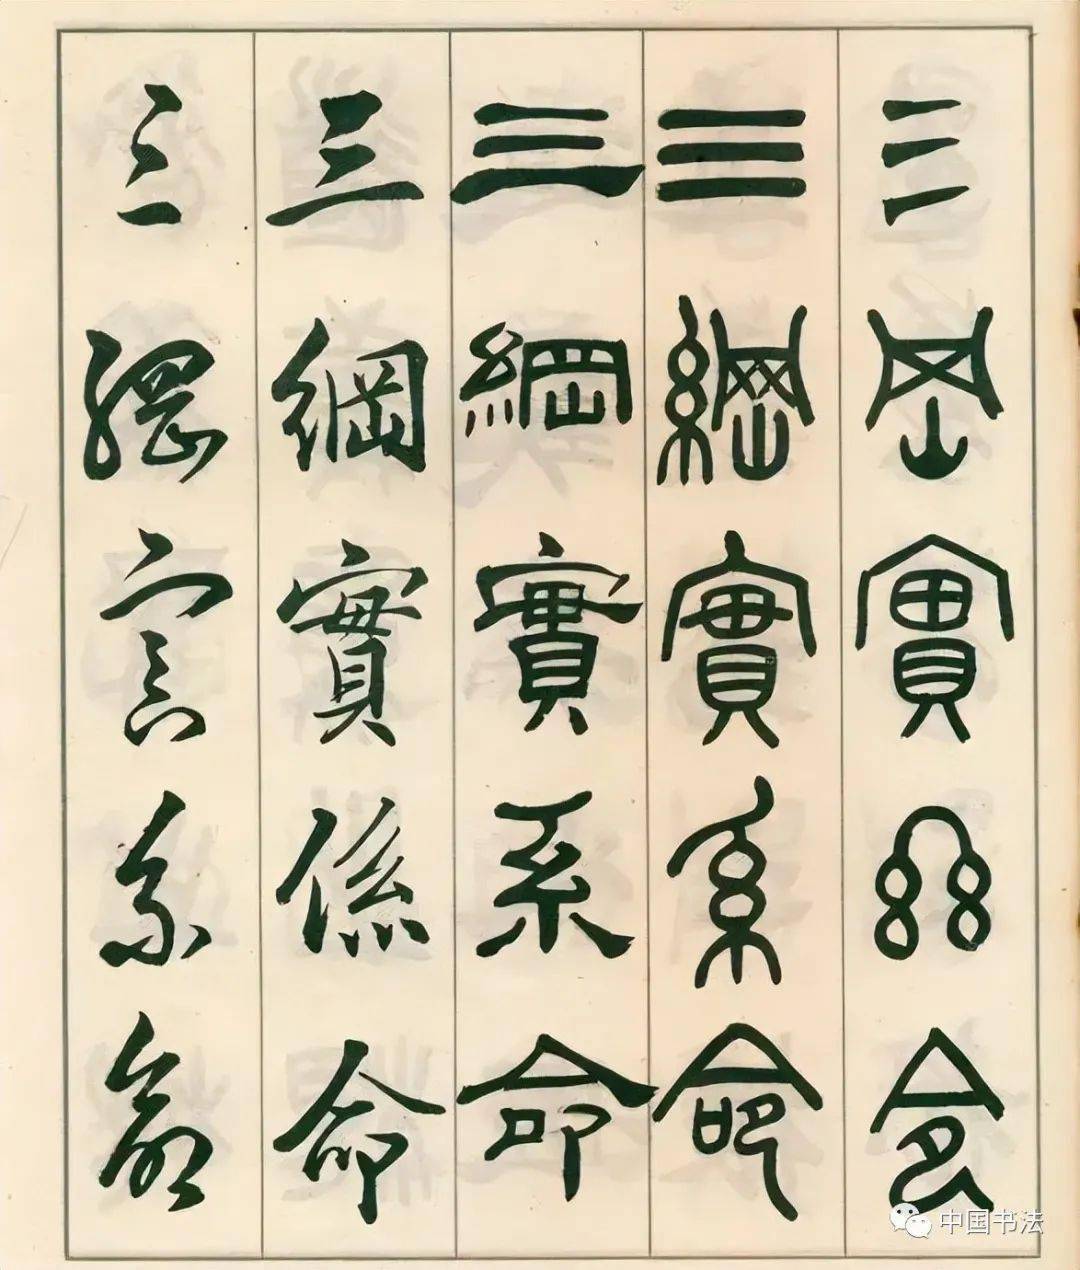 三岡實系令
三綱實系命
三綱實系命
三綱實係命
三綱實系命
中国书法